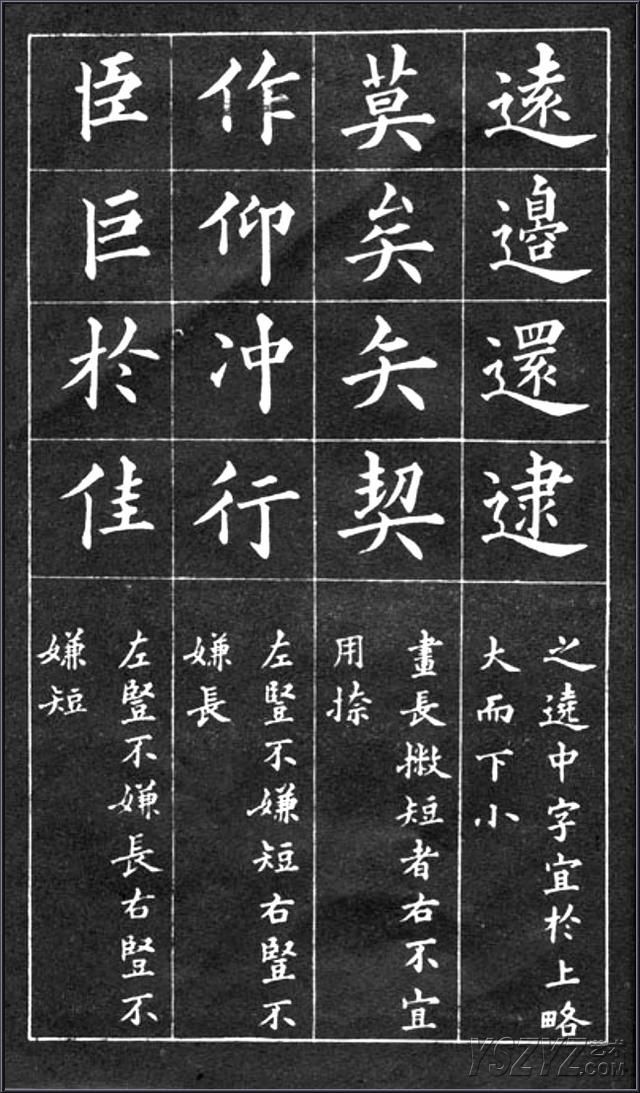 遠邊還逮
之遶中字宜於上略
大而下小
莫矣矢契
畫長撇短者右不宜
用捺
作仰冲行
左豎不嫌短右豎不
嫌長
臣巨於佳
左豎不嫌長右豎不
嫌短
YSZYZ艺术
.COM